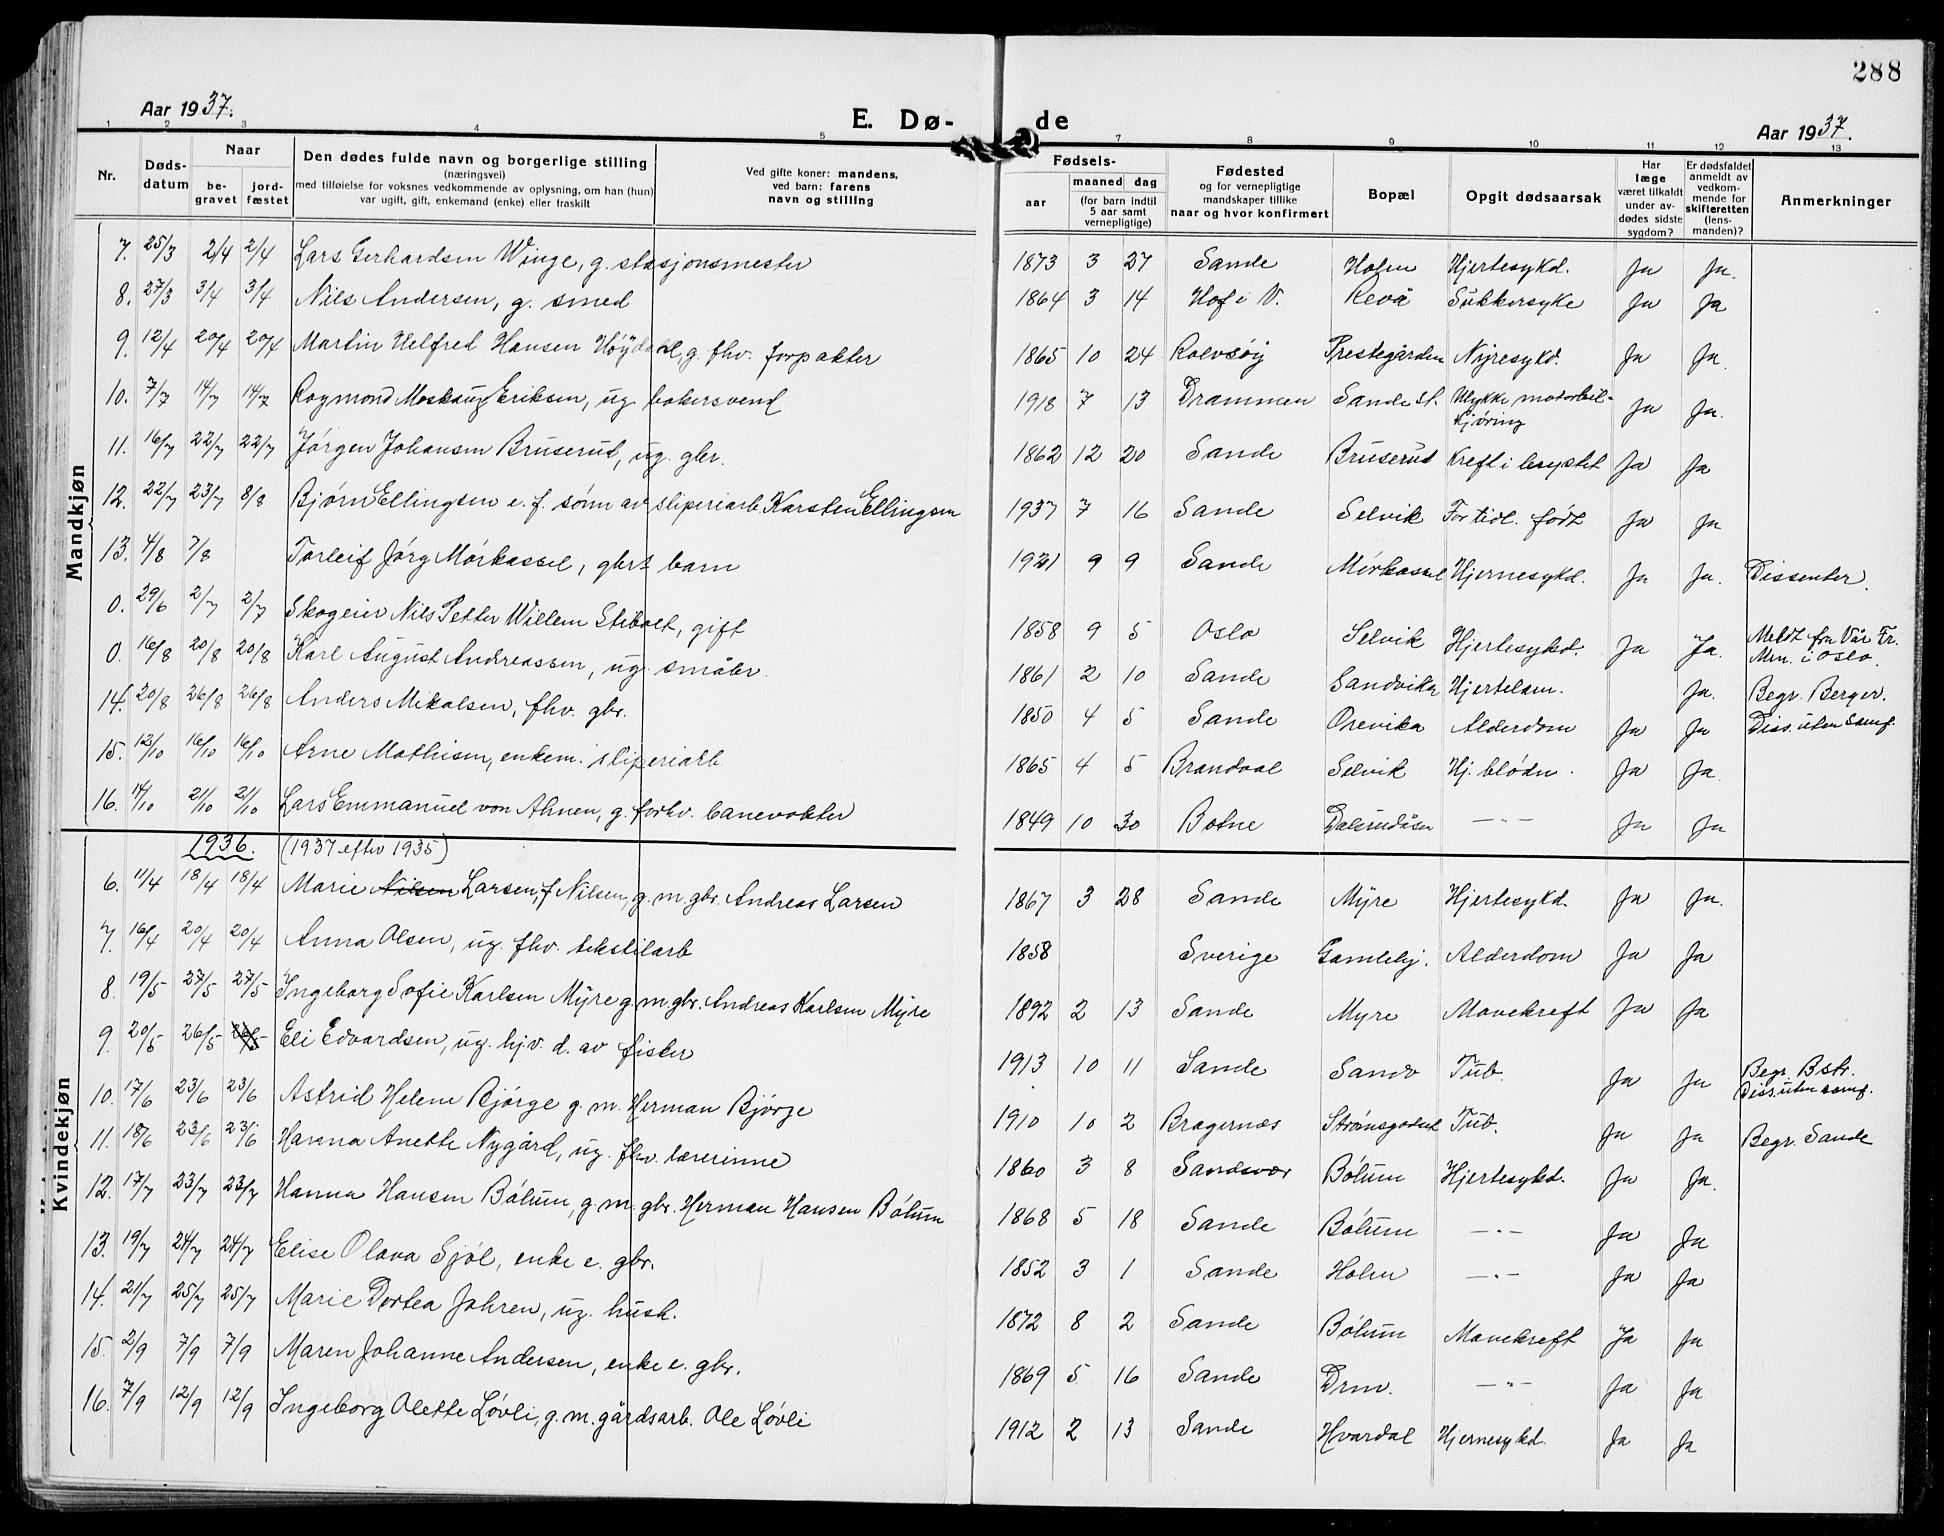 288
Aar 1937.
E. Dø-
de
Aar 1937.
1 2 3 4 5 7 8 9 10 11 12 13
Nr.
Døds-
datum
Naar
be-
gravet
jord-
fæstet
Den dødes fulde navn og borgerlige stilling
(næringsvei)
med tilføielse for voksnes vedkommende av oplysning, om han (hun)
var ugift, gift, enkemand (enke) eller fraskilt
Ved gifte koner: mandens,
ved barn: farens
navn og stilling
Fødsels-
aar
maaned dag
(for barn indtil
5 aar samt
vernepligtige)
Fødested
og for vernepligtige
mandskaper tillike
naar og hvor konfirmert
Bopæl
Opgit dødsaarsak
Har
læge
været tilkaldt
under av-
dødes sidste
sygdom?
Er dødsfaldet
anmeldt av
vedkom-
mende for
skifteretten
(lens-
manden)?
Anmerkninger
Mandkjøn
7. 25/3 2/4 2/4 Lars Gerhardsen Winge, g. stasjonsmester 1873 3 27 Sande Holm Hjertesykd. Ja Ja.
8. 27/3 3/4 3/4 Nils Andersen, g. smed 1864 3 14 Hof i V. Revå Sukkersyke Ja Ja
9. 12/4 20/4 20/4 Martin Helfred Hansen Höydahl, g. fhv. forpakter 1865 10 24 Rolvsøy Prestegården Nyresykd. Ja Ja.
10. 7/7 14/7 14/7 Raymond Moskaug Eriksen, ug. bakersvend 1918 7 13 Drammen Sande st. Ulykke motorbil-
kjøring Ja Ja.
11. 16/7 22/7 22/7 Jørgen Johansen Bruserud, ug. gbr. 1862 12 20 Sande Bruserud Kreft i brystet Ja Ja
12. 22/7 23/7 8/8 Bjørn Ellingsen e. f. sønn av sliperiarb. Karsten Ellingsen 1937 7 16 Sande Selvik For tidl. født Ja Ja
13. 4/8 7/8 Torleif Jörg Mörkassel, gbrs barn 1931 9 9 Sande Mörkassel Hjernesykd. Ja Ja. Dissenter.
0. 29/6 2/7 2/7 Skogeier Nils Petter Willem Stibolt, gift 1858 9 5 Oslo Selvik Hjertesykd. Ja Ja. Meldt fra Vår Fr.
Men. i Oslo.
0. 16/8 20/8 20/8 Karl August Andreassen, ug. småbr. 1861 2 10 Sande Sandvika Hjertelam. Ja. Begr. Berger.
14. 20/8 26/8 26/8 Anders Mikalsen, fhv. gbr. 1850 4 5 Sande Orevika Alderdom Ja Ja Diss. uten samf.
15. 12/10 16/10 16/10 Arne Mathisen, enkem. sliperiarb. 1865 4 5 Brandval Selvik Hj. blødn. Ja Ja.
16. 14/10 21/10 21/10 Lars Emmanuel von Ahnen, g. forhv. banevokter 1849 10 30 Botne —"— Ja Ja
1936. (1937 efter 1935)
Kvindekjøn
6. 11/4 18/4 18/4 Marie Nilsen Larsen, f Nilsen, g. m. gbr. Andreas Larsen 1867 3 28 Sande Myre Hjertesykd. Ja Ja.
7. 16/4 20/4 20/4 Anna Olsen, ug. fhv. tekstilarb 1858 Sverige Gamlehj. Alderdom Ja Ja
8. 19/5 27/5 27/5 Ingeborg Sofie Karlsen Myre g. m. gbr. Andreas Karlsen Myre 1892 2 13 Sande Myre Mavekreft Ja Ja
9. 20/5 26/5 26/5 Eli Edvardsen, ug. hjv. d. av fisker 1913 10 11 Sande Sandv Tub. Ja Ja Begr. Bstr.
Diss. uten samf.
10. 17/6 23/6 23/6 Astrid Helene Bjørge g. m. Herman Bjørge 1910 10 2 Bragernæs Strømsgodset Tub. Ja Ja Begr. Sande
11. 18/6 23/6 23/6 Hanna Anette Nygård, ug. fhv. lærerinne 1860 3 8 Sandsvær Bölum Hjertesykd. Ja Ja.
12. 17/7 23/7 23/7 Hanna Hansen Bölum, g. m. gbr. Herman Hansen Bölum 1868 5 18 Sande Bölum —"— Ja Ja
13. 19/7 24/7 24/7 Elise Olava Sjöl, enke e. gbr. 1852 3 1 Sande Holm —"— Ja Ja
14. 21/7 25/7 25/7 Marie Dortea Jahren, ug. hush. 1872 8 2 Sande Bölum Mavekreft Ja Ja
15. 2/9 7/9 7/9 Maren Johanne Andersen, enke e. gbr. 1869 5 16 Sande Drm. —"— Ja Ja
16. 7/9 12/9 12/9 Ingeborg Olette Løvli, g. m. gårdsarb. Ole Løvli 1912 2 13 Sande Hvardal Hjernesykd. Ja Ja